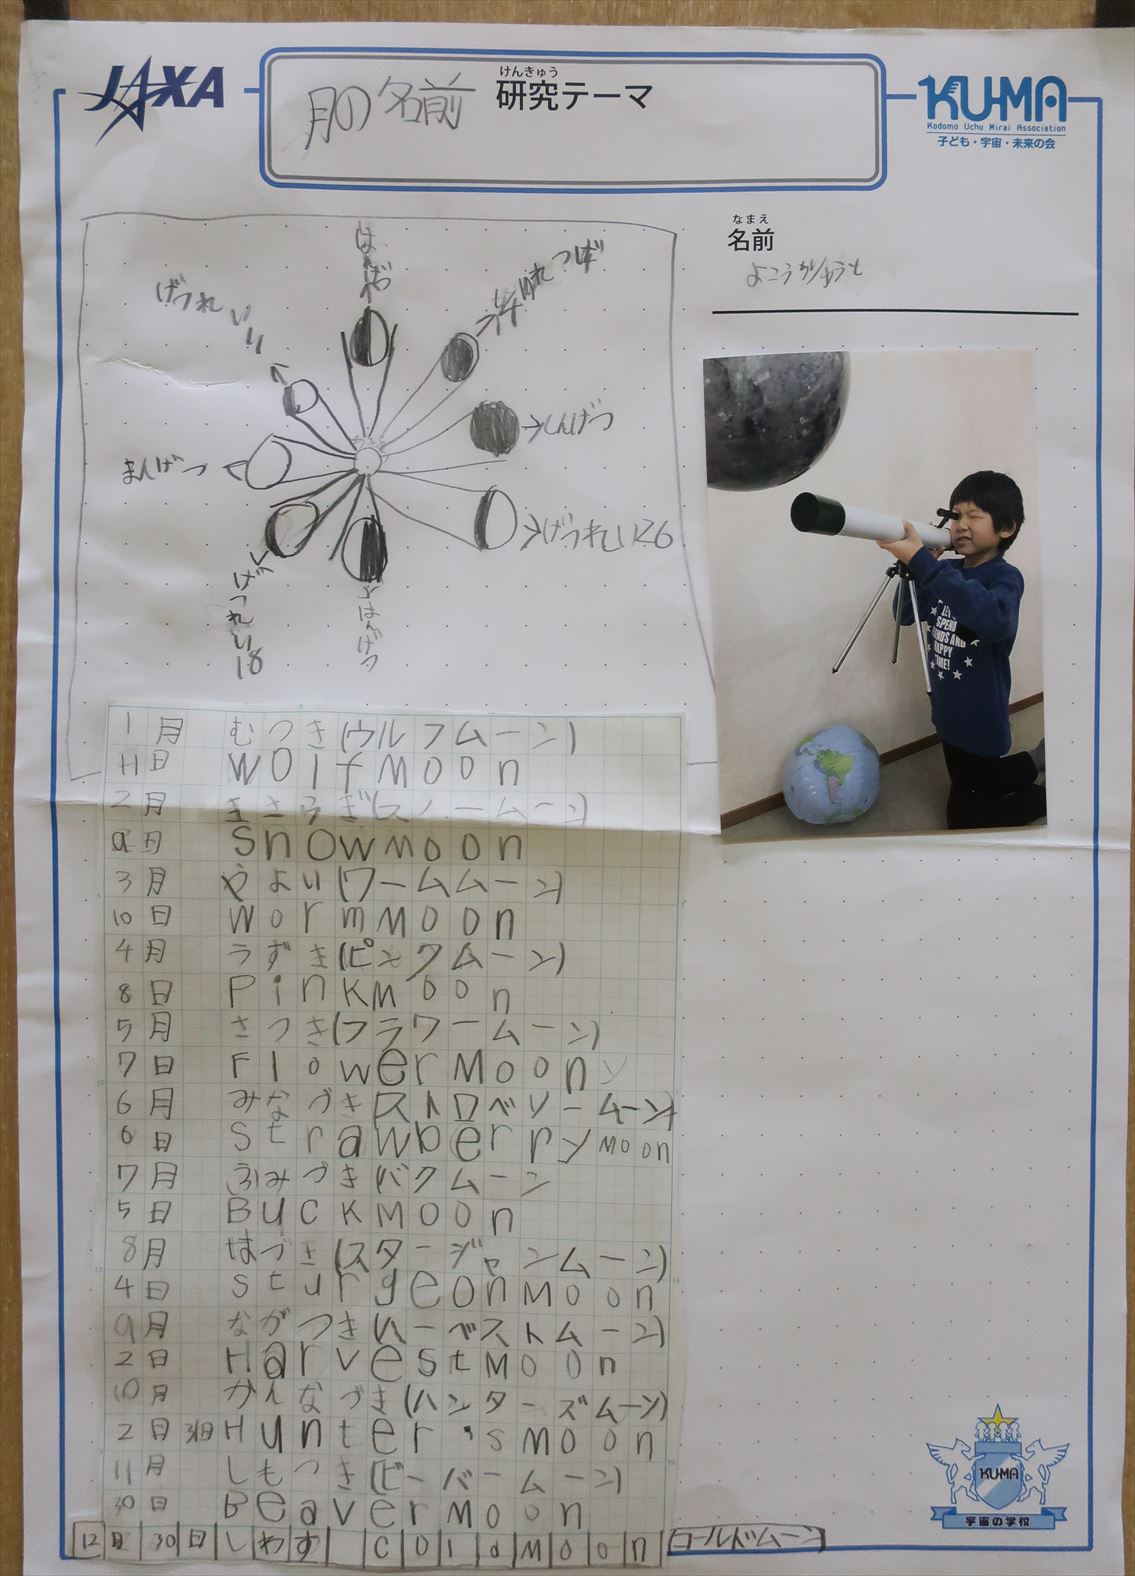 JAXA
月の名前
けんきゅう
研究テーマ
KUMA
Kodomo Uchu Mirai Association
子ども・宇宙・未来の会
なまえ
名前
げつれい
→しんげつ
まんげつ
→げつれい26
げつれい18
はんげつ
LET'S
SPEND
FRIENDS AND
HAPPY
TIME!
1月 むつき(ウルフムーン)
11日 Wolf Moon
2月 きさらぎ(スノームーン)
9日 Snow Moon
3月 やよい(ワームムーン)
10日 Worm Moon
4月 うずき(ピンクムーン)
8日 Pink Moon
5月 さつき(フラワームーン)
7日 Flower Moon
6月 みなづき(ストロベリームーン)
6日 Strawberry Moon
7月 ふみづき(バクムーン
5日 Buck Moon
8月 はづき(スタージャンムーン)
4日 Sturgeon Moon
9月 ながつき(ハーベストムーン)
2日 Harvest Moon
10月 かんなづき(ハンターズムーン)
2日 31日 Hunter's Moon
11月 しもつき(ビーバームーン)
30日 Beaver Moon
12月 30日 しわす Cold Moon (コールドムーン)
KUMA
宇宙の学校